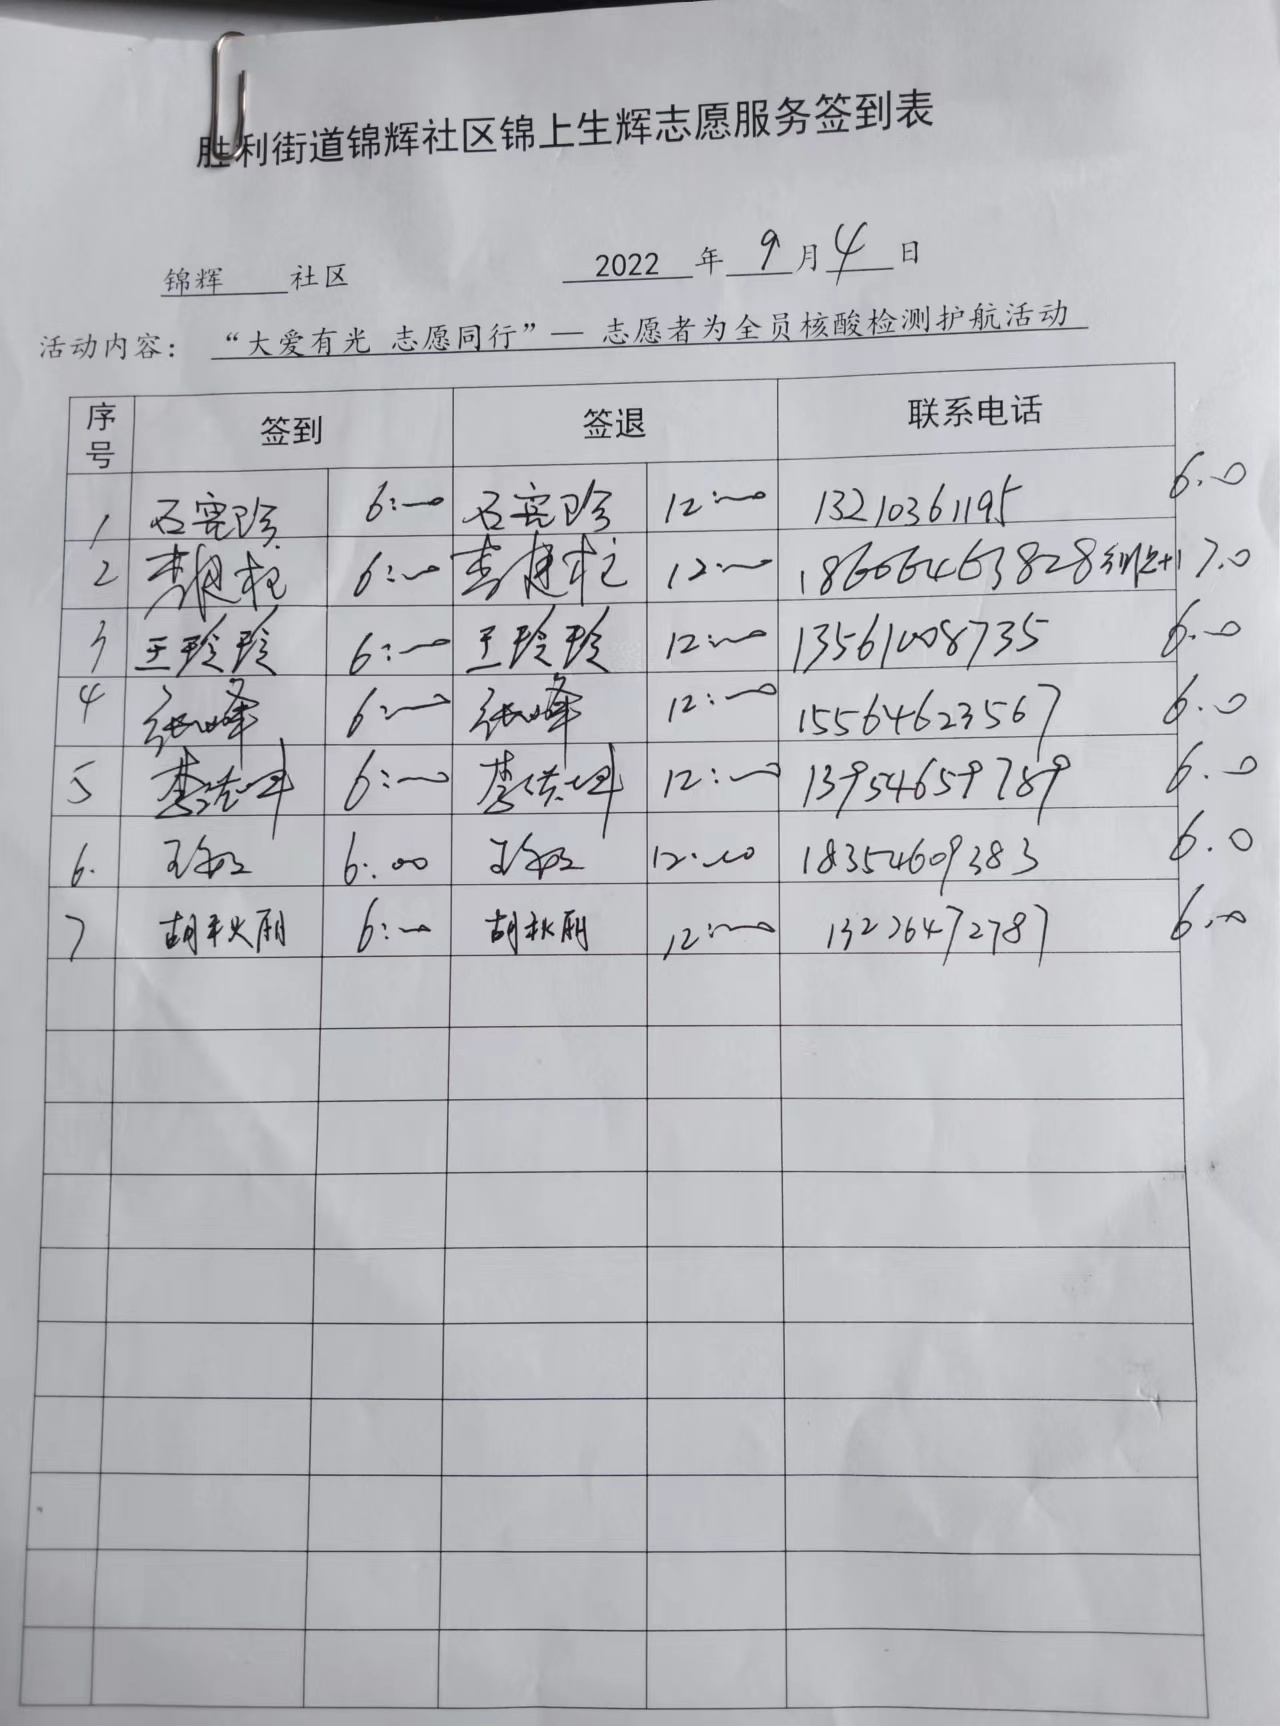 胜利街道锦辉社区锦上生辉志愿服务签到表
锦辉 社区 2022 年 9 月 4 日
活动内容： “大爱有光 志愿同行”— 志愿者为全员核酸检测护航活动
序号 签到 签退 联系电话
1 石宪珍 6:00 石宪珍 12:00 13210361195 6.0
2 李建柱 6:00 李建柱 12:00 18666463828 +1 7.0
3 王玲玲 6:00 王玲玲 12:00 13561008735 6.0
4 张峰 6:00 张峰 12:00 15564623567 6.0
5 李洪坤 6:00 李洪坤 12:00 13954659789 6.0
6. 王 6:00 王 12:00 18354609383 6.0
7 胡秋丽 6:00 胡秋丽 12:00 13226472787 6.0